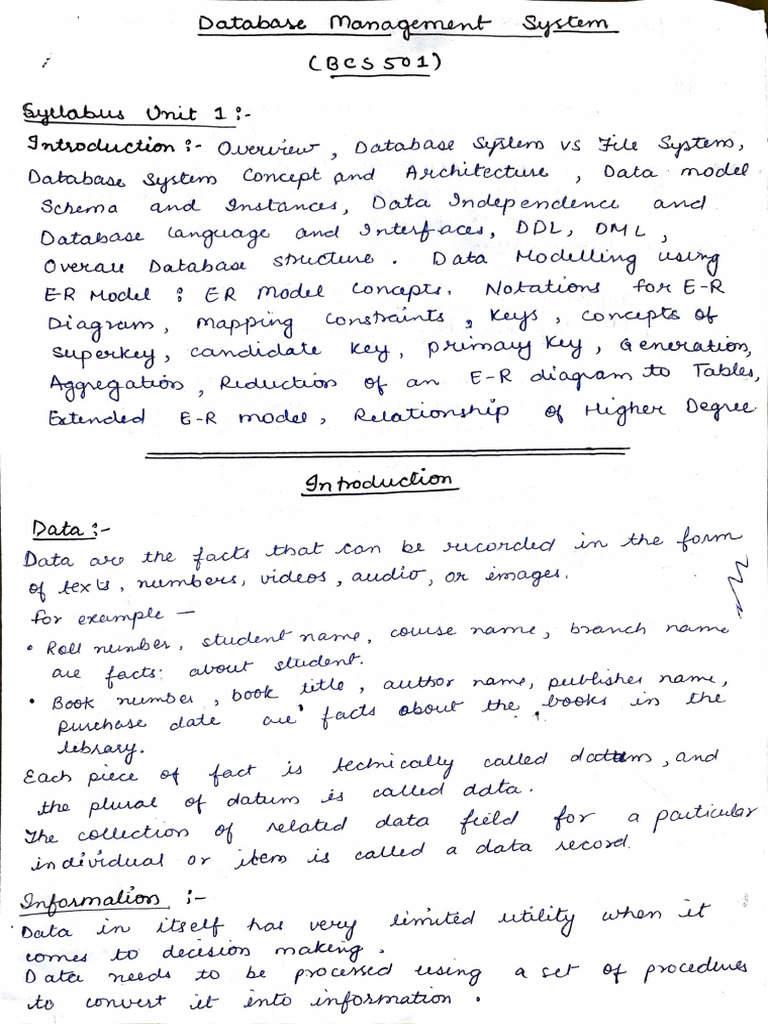 Database Management System
(BCS501)
Syllabus Unit 1 :-
Introduction :- Overview, Database System vs File System,
Database System Concept and Architecture, Data model
Schema and Instances, Data Independence and
Database language and Interfaces, DDL, DML,
Overall Database structure. Data Modelling using
E-R Model : ER Model Concepts. Notations for E-R
Diagram, Mapping Constraints, Keys, Concepts of
Superkey, candidate key, primary key, Generation,
Aggregation, Reduction of an E-R diagram to Tables,
Extended E-R model, Relationship of Higher Degree
Introduction
Data :-
Data are the facts that can be recorded in the form
of texts, numbers, videos, audio, or images.
for example —
• Roll number, student name, course name, branch name
are facts about student.
• Book number, book title, author name, publisher name,
purchase date are facts about the books in the
library.
Each piece of fact is technically called datum, and
the plural of datum is called data.
The collection of related data field for a particular
individual or item is called a data record.
Information :-
Data in itself has very limited utility when it
comes to decision making.
Data needs to be processed using a set of procedures
to convert it into information.